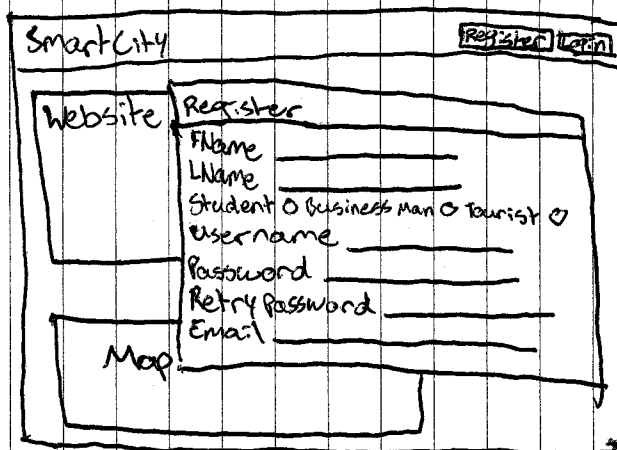 SmartCity
Register Login
Website
Register
FName
LName
Student Business Man Tourist
Username
Password
Retry Password
Email
Map